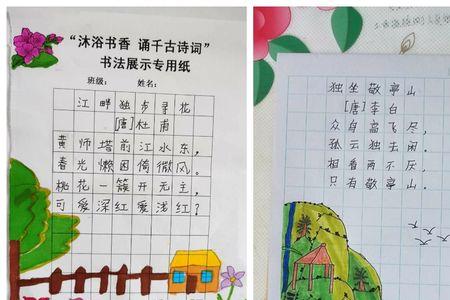 “沐浴书香 诵千古诗词”
书法展示专用纸
班级: 姓名:
江畔独步寻花
[唐]杜甫
黄师塔前江水东,
春光懒困倚微风。
桃花一簇开无主,
可爱深红爱浅红?
独坐敬亭山
[唐]李白
众鸟高飞尽,
孤云独去闲。
相看两不厌,
只有敬亭山。